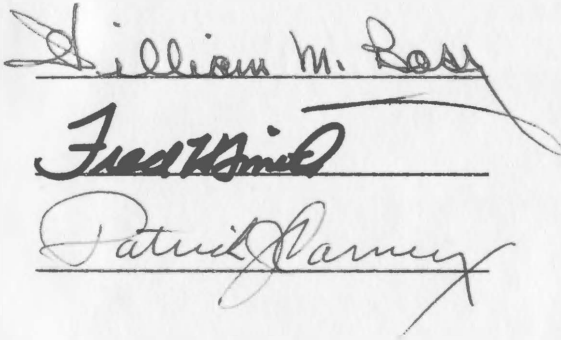 William M. Ross
Fred
Patrick J Carney